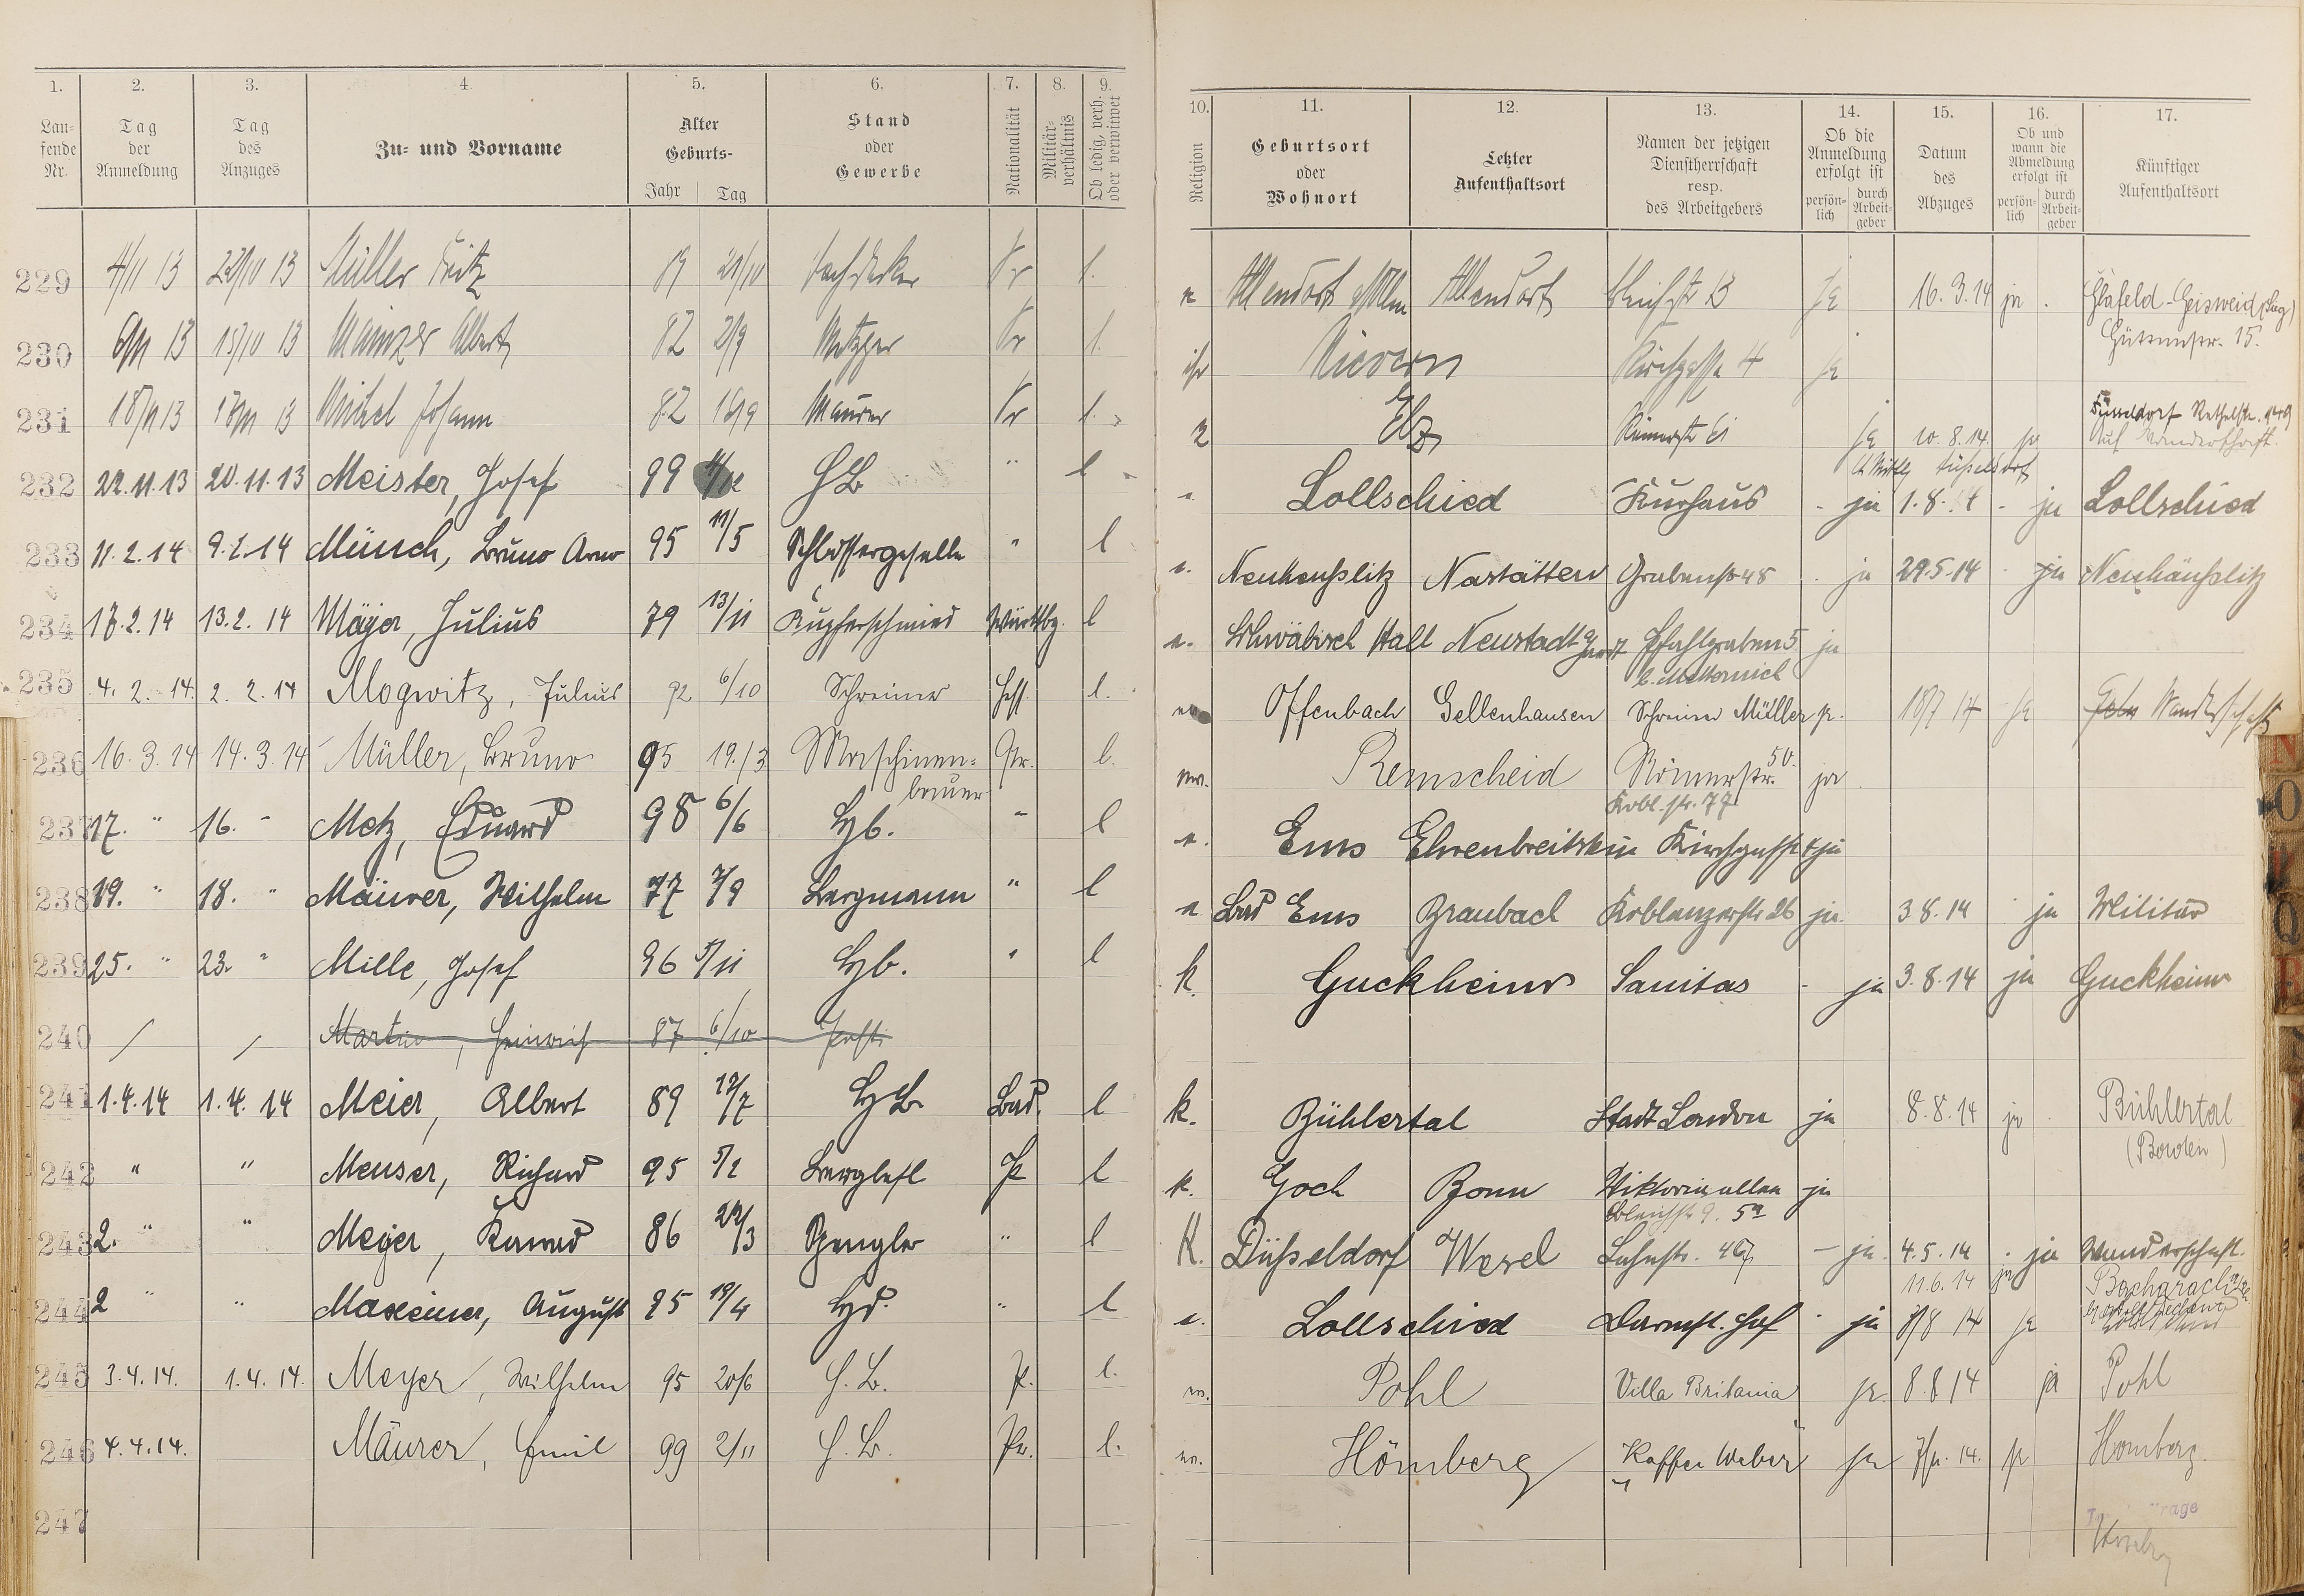 1. 2. 3. 4. 5. 6. 7. 8. 9.
Lau-
fende
Nr.
Tag
der
Anmeldung
Tag
des
Anzuges
Zu- und Vorname
Alter
Geburts-
Jahr Tag
Stand
oder
Gewerbe
Nationalität
Militär-
verhältnis
Ob ledig, verh.
oder verwitwet
10. 11. 12. 13. 14. 15. 16. 17.
Religion
Geburtsort
oder
Wohnort
Letzter
Aufenthaltsort
Namen der jetzigen
Dienstherrschaft
resp.
des Arbeitgebers
Ob die
Anmeldung
erfolgt ist
persön-
lich
durch
Arbeit-
geber
Datum
des
Abzuges
Ob und
wann die
Abmeldung
erfolgt ist
persön-
lich
durch
Arbeit-
geber
Künftiger
Aufenthaltsort
229 4/11 13 Müller Fritz 89 21/10 Dachdecker Pr l. Allendorf Allendorf 13 16.3.14 ja Geisweid
15.
230 13 15/10 13 Mainzer Albert 82 2/9 Metzger Pr l. isr Nievern Kirchgasse 4 ja
231 18/11 13 13 Michel Johann 82 16/9 Maurer Pr l. Elz Römerstr 61 ja 10.8.14. ja Düsseldorf
Auf Wanderschaft.
232 22.11.13 20.11.13 Meister, Josef 99 4/12 HB " l Lollschied Kurhaus - ja 1.8.14 - ja Lollschied
233 11.2.14 9.2.14 Münch, Bruno Arno 95 11/5 Schlossergeselle " l Neukeußlitz Nastätten Grabenstr 48 ja 29.5.14 ja Neuhäußlitz
234 13.2.14 Mäyer, Julius 79 13/11 Kupferschmied Württbg. l Schwäbisch Hall Neustadt Pfahlgraben 5 ja
b. Metternich
235 4. 2. 14. 2. 2. 14 Mogwitz, Julius 92 6/10 Schreiner Hess. l. Offenbach Gellenhausen Schreiner Müller ja. 18/7 14 ja Wanderschaft
236 16.3.14 14.3.14 Müller, Bruno 95 19./3 Maschinen-
bauer Pr. l. Remscheid Römerstr. 50. ja
Kobl. str. 77
237 17. " 16. " Metz, Eduard 98 6/6 Hb. " l Ems Ehrenbreitstein Kirchgasse ja
238 19. " 18. " Mäurer, Wilhelm 77 7/9 Bergmann " l Bad Ems Braubach Koblenzerstr 26 ja 3.8.14 ja Militär
239 25. " 23. " Mille, Josef 96 5/11 Hb. " l k. Guckheim Sanitas - ja 3.8.14 ja Guckheim
240 / / Martin, Heinrich 87 6/10
241 1.4.14 1.4.14 Meier, Albert 89 12/7 HB Bad. l k. Bühlertal Stadt London ja 8.8.14 ja Bühlertal
(Baden)
242 " " Meuser, Richard 95 5/2 Bergbefl Pr l k. Goch Bonn Viktoriaallee ja
Bleichstr 9.
243 2. " " Meyer, Konrad 86 29/3 Spengler " l K. Düsseldorf Wesel Lahnstr. 46 - ja. 4.5.14 ja Wanderschaft.
11.6.14 ja Bacharach
244 2 " " Maxeiner, August 95 19/4 Hd. " l Lollschied Darmst. Hof ja 8/8 14 ja Lollschied
245 3.4.14. 1.4.14. Meyer, Wilhelm 95 20/6 H.B. Pr. l. Pohl Villa Britania ja 8.8 14 ja Pohl
246 4.4.14. Mäurer, Emil 99 2/11 H.B. Pr. l. Hömberg Kaffee Weber ja 14. ja Homberg.
247